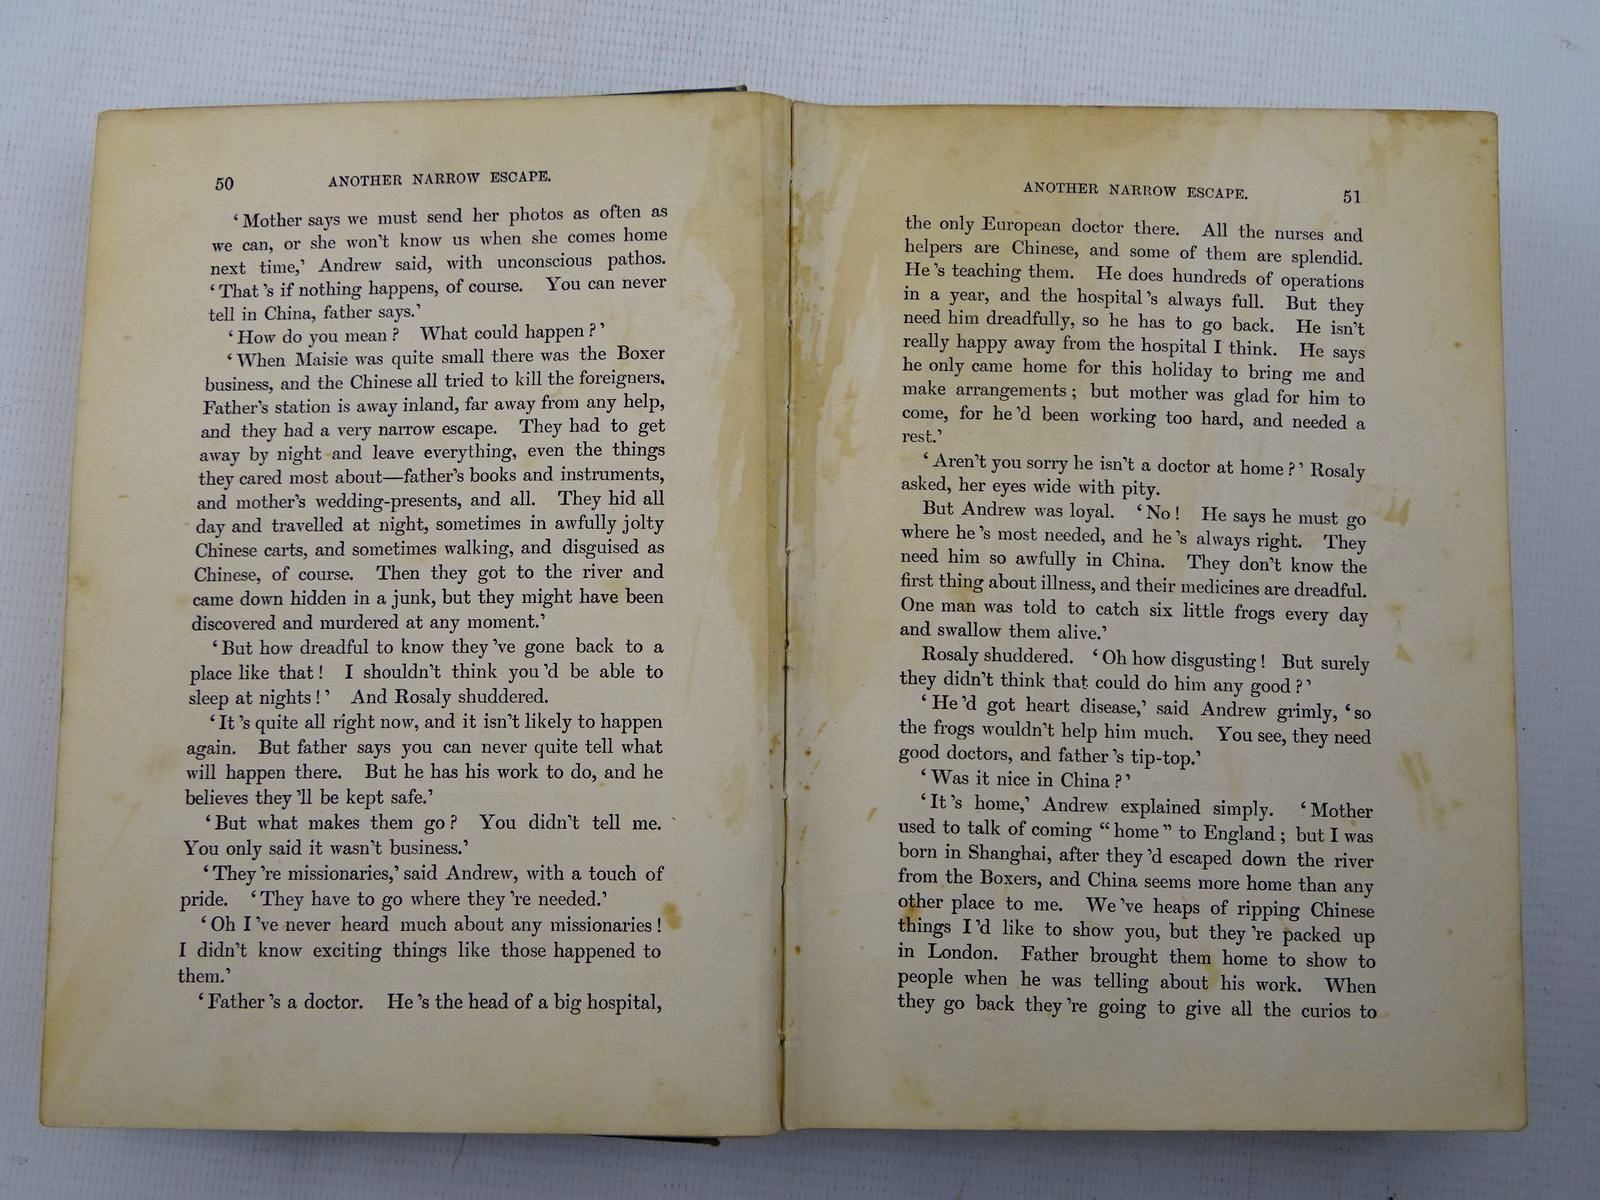 50
ANOTHER NARROW ESCAPE.
‘Mother says we must send her photos as often as
we can, or she won’t know us when she comes home
next time,’ Andrew said, with unconscious pathos.
‘That’s if nothing happens, of course. You can never
tell in China, father says.’
‘How do you mean? What could happen?’
‘When Maisie was quite small there was the Boxer
business, and the Chinese all tried to kill the foreigners.
Father’s station is away inland, far away from any help,
and they had a very narrow escape. They had to get
away by night and leave everything, even the things
they cared most about—father’s books and instruments,
and mother’s wedding-presents, and all. They hid all
day and travelled at night, sometimes in awfully jolty
Chinese carts, and sometimes walking, and disguised as
Chinese, of course. Then they got to the river and
came down hidden in a junk, but they might have been
discovered and murdered at any moment.’
‘But how dreadful to know they’ve gone back to a
place like that! I shouldn’t think you’d be able to
sleep at nights!’ And Rosaly shuddered.
‘It’s quite all right now, and it isn’t likely to happen
again. But father says you can never quite tell what
will happen there. But he has his work to do, and he
believes they’ll be kept safe.’
‘But what makes them go? You didn’t tell me.
You only said it wasn’t business.’
‘They’re missionaries,’ said Andrew, with a touch of
pride. ‘They have to go where they’re needed.’
‘Oh I’ve never heard much about any missionaries!
I didn’t know exciting things like those happened to
them.’
‘Father’s a doctor. He’s the head of a big hospital,
ANOTHER NARROW ESCAPE.
51
the only European doctor there. All the nurses and
helpers are Chinese, and some of them are splendid.
He’s teaching them. He does hundreds of operations
in a year, and the hospital’s always full. But they
need him dreadfully, so he has to go back. He isn’t
really happy away from the hospital I think. He says
he only came home for this holiday to bring me and
make arrangements; but mother was glad for him to
come, for he’d been working too hard, and needed a
rest.’
‘Aren’t you sorry he isn’t a doctor at home?’ Rosaly
asked, her eyes wide with pity.
But Andrew was loyal. ‘No! He says he must go
where he’s most needed, and he’s always right. They
need him so awfully in China. They don’t know the
first thing about illness, and their medicines are dreadful.
One man was told to catch six little frogs every day
and swallow them alive.’
Rosaly shuddered. ‘Oh how disgusting! But surely
they didn’t think that could do him any good?’
‘He’d got heart disease,’ said Andrew grimly, ‘so
the frogs wouldn’t help him much. You see, they need
good doctors, and father’s tip-top.’
‘Was it nice in China?’
‘It’s home,’ Andrew explained simply. ‘Mother
used to talk of coming “home” to England; but I was
born in Shanghai, after they’d escaped down the river
from the Boxers, and China seems more home than any
other place to me. We’ve heaps of ripping Chinese
things I’d like to show you, but they’re packed up
in London. Father brought them home to show to
people when he was telling about his work. When
they go back they’re going to give all the curios to